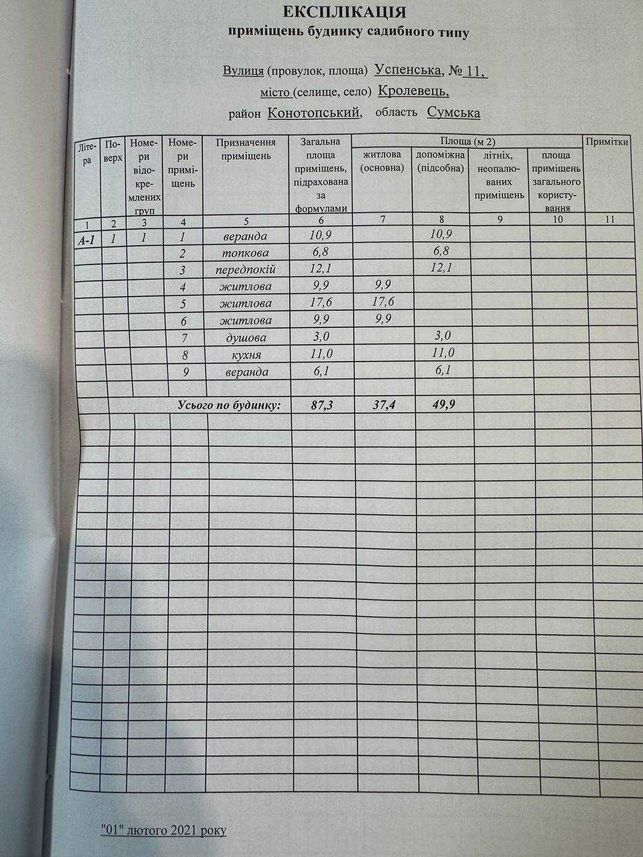 ЕКСПЛІКАЦІЯ
приміщень будинку садибного типу
Вулиця (провулок, площа) Успенська, № 11,
місто (селище, село) Кролевець,
район Конотопський, область Сумська
Літе-
ра
По-
верх
Номе-
ри
відо-
кре-
млених
груп
Номе-
ри
примі-
щень
Призначення
приміщень
Загальна
площа
приміщень,
підрахована
за
формулами
Площа (м 2)
житлова
(основна)
допоміжна
(підсобна)
літніх,
неопалю-
ваних
приміщень
площа
приміщень
загального
користу-
вання
Примітки
1 2 3 4 5 6 7 8 9 10 11
А-1 1 1 1 веранда 10,9 10,9
2 топкова 6,8 6,8
3 передпокій 12,1 12,1
4 житлова 9,9 9,9
5 житлова 17,6 17,6
6 житлова 9,9 9,9
7 душова 3,0 3,0
8 кухня 11,0 11,0
9 веранда 6,1 6,1
Усього по будинку: 87,3 37,4 49,9
"01" лютого 2021 року